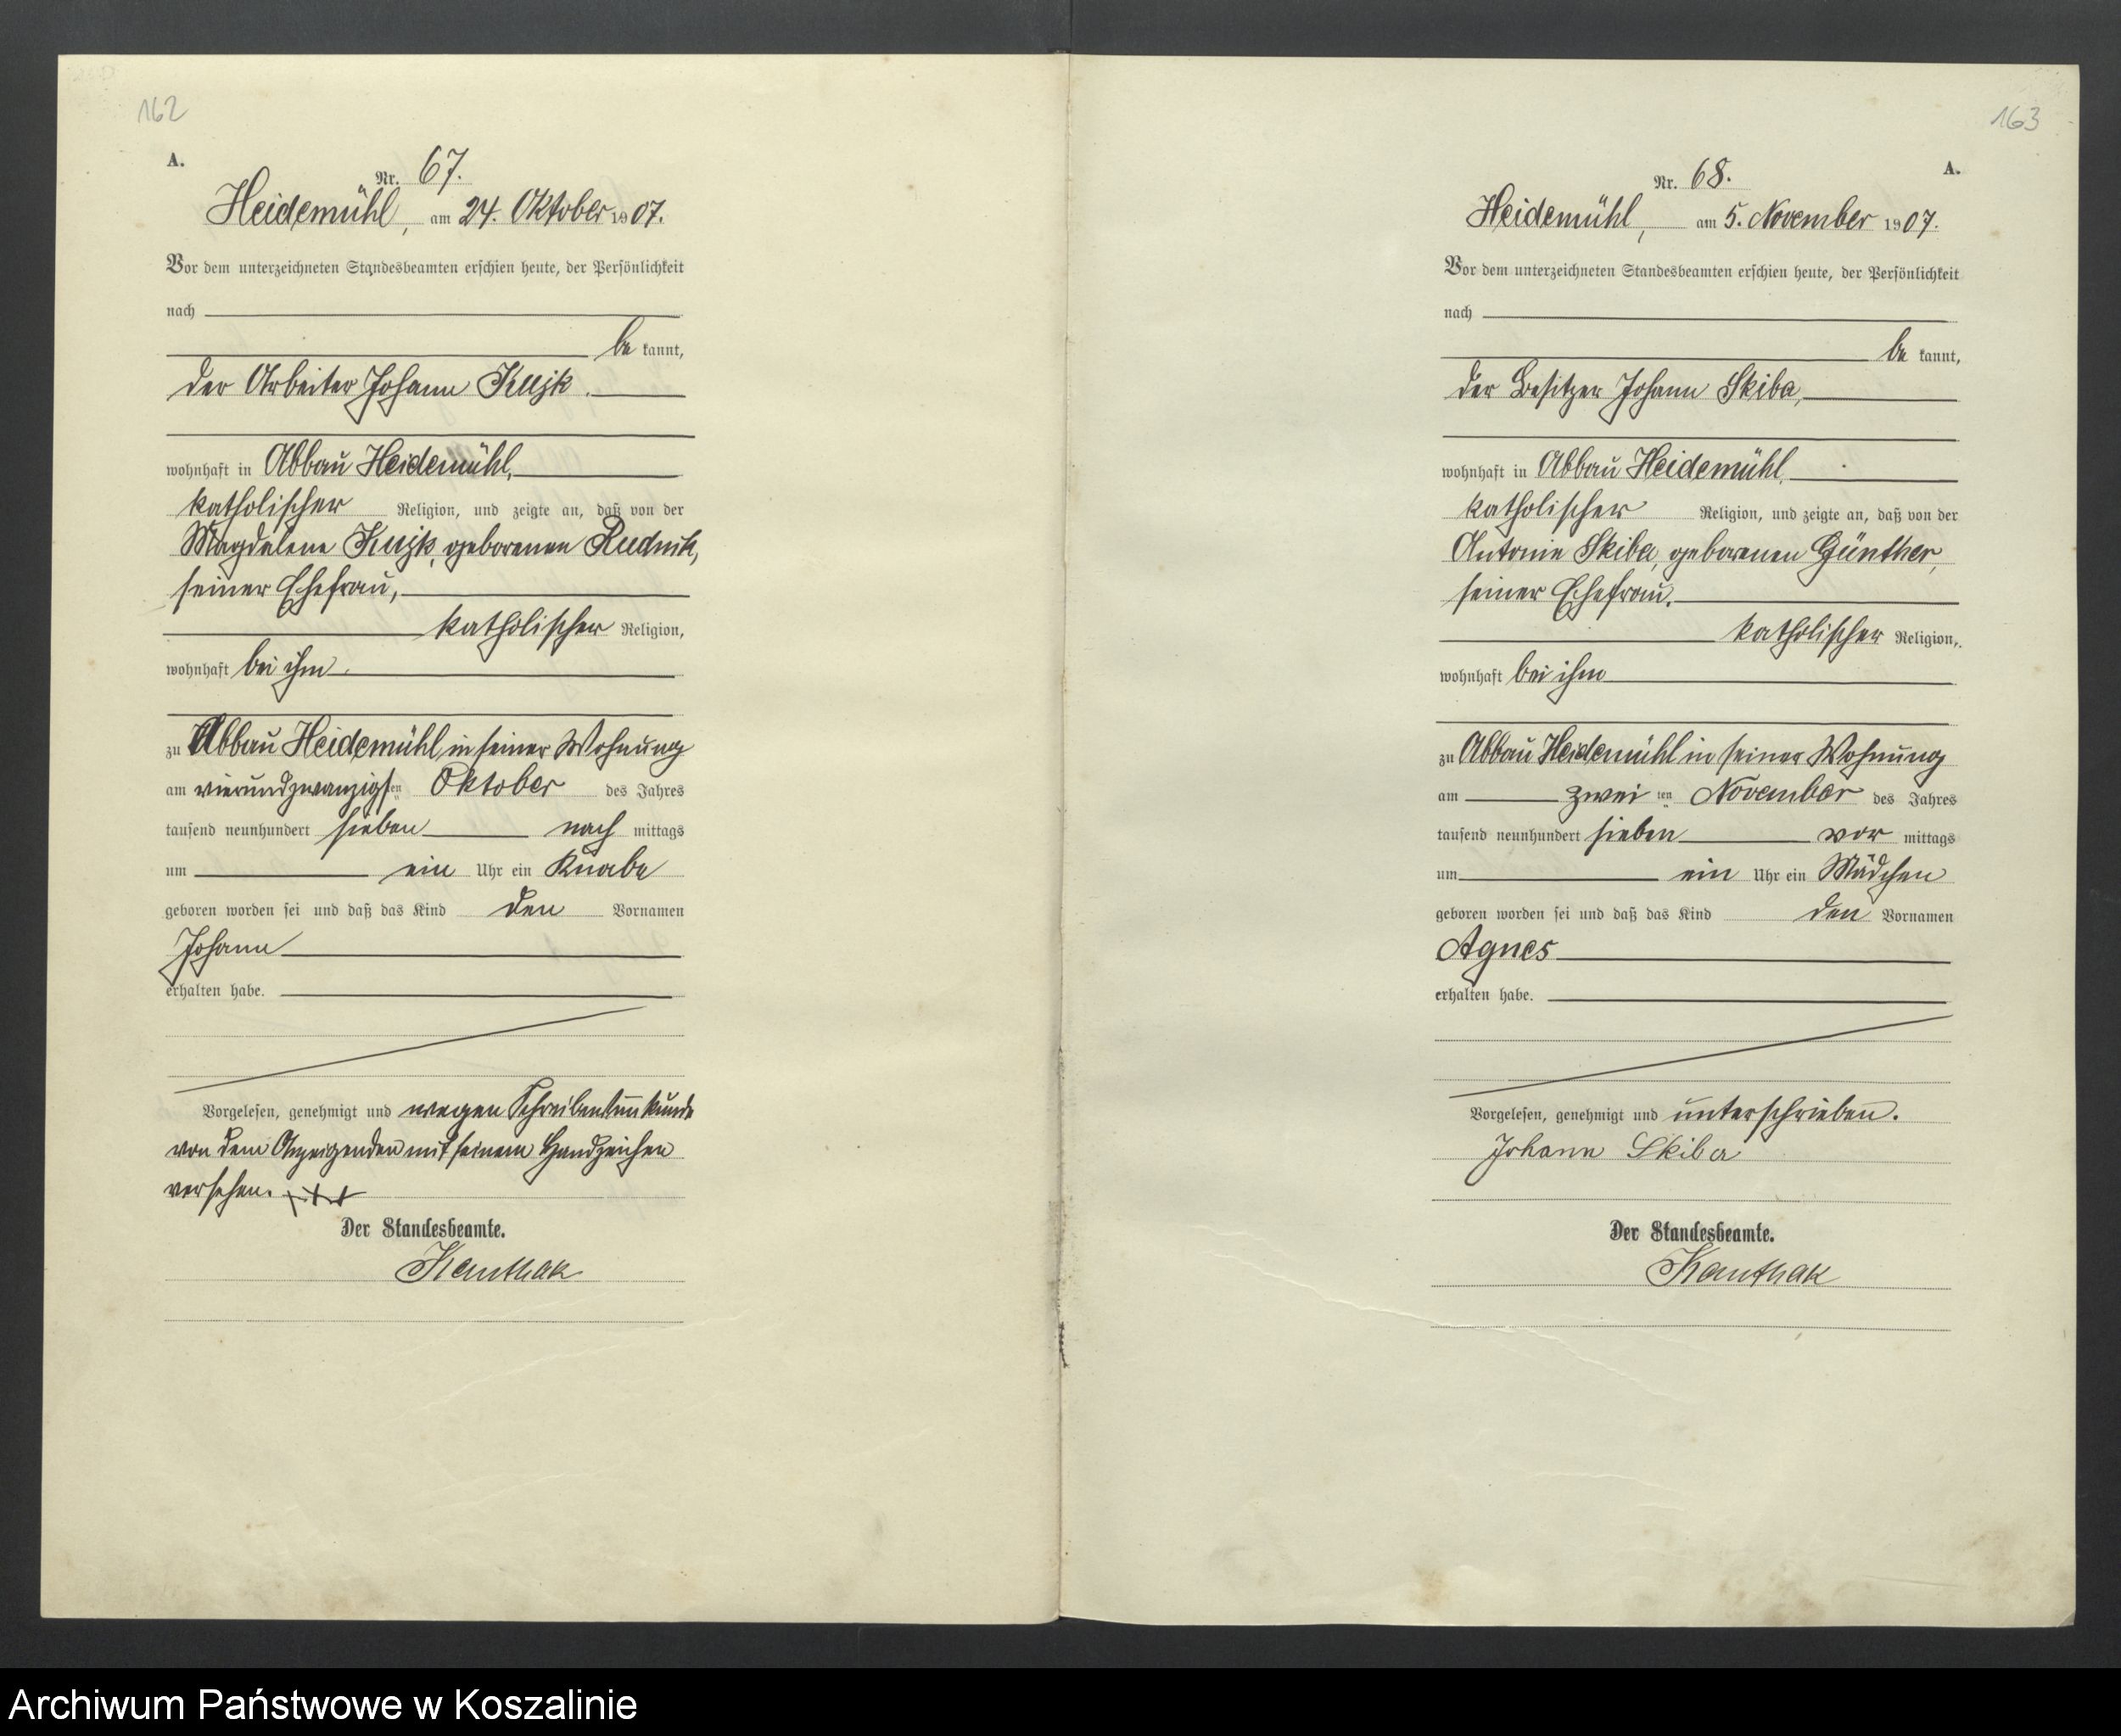 162
A.
Nr. 67.
Heidemühl, am 24. Oktober 1907.
Vor dem unterzeichneten Standesbeamten erschien heute, der Persönlichkeit
nach
be kannt,
der Arbeiter Johann Kujk.
wohnhaft in Abbau Heidemühl,
katholischer Religion, und zeigte an, daß von der
Magdalene Kujk, geborenen Rudnik,
seiner Ehefrau,
katholischer Religion,
wohnhaft bei ihm
zu Abbau Heidemühl in seiner Wohnung
am vierundzwanzigsten Oktober des Jahres
tausend neunhundert sieben nach mittags
um ein Uhr ein Knabe
geboren worden sei und daß das Kind den Vornamen
Johann
erhalten habe.
Vorgelesen, genehmigt und wegen Schreibensunkunde
von dem Anzeigenden mit seinem Handzeichen
versehen. +++
Der Standesbeamte.
Kanthak
163
A.
Nr. 68.
Heidemühl, am 5. November 1907.
Vor dem unterzeichneten Standesbeamten erschien heute, der Persönlichkeit
nach
be kannt,
der Besitzer Johann Skiba,
wohnhaft in Abbau Heidemühl,
katholischer Religion, und zeigte an, daß von der
Antonie Skiba, geborenen Günther,
seiner Ehefrau,
katholischer Religion,
wohnhaft bei ihm
zu Abbau Heidemühl in seiner Wohnung
am zwei ten November des Jahres
tausend neunhundert sieben vor mittags
um ein Uhr ein Mädchen
geboren worden sei und daß das Kind den Vornamen
Agnes
erhalten habe.
Vorgelesen, genehmigt und unterschrieben.
Johann Skiba
Der Standesbeamte.
Kanthak
Archiwum Państwowe w Koszalinie